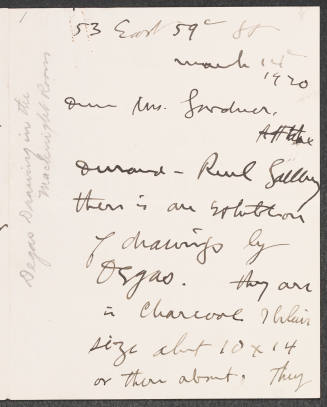 53 East 59th St
March 14th
1920
Dear Mrs. Gardner,
At the
Durand-Ruel Gallery
there is an exhibition
of drawings by
Degas. They are
in Charcoal
size about 10 x 14
or there about. They
Degas Drawing in the
Macknight Room